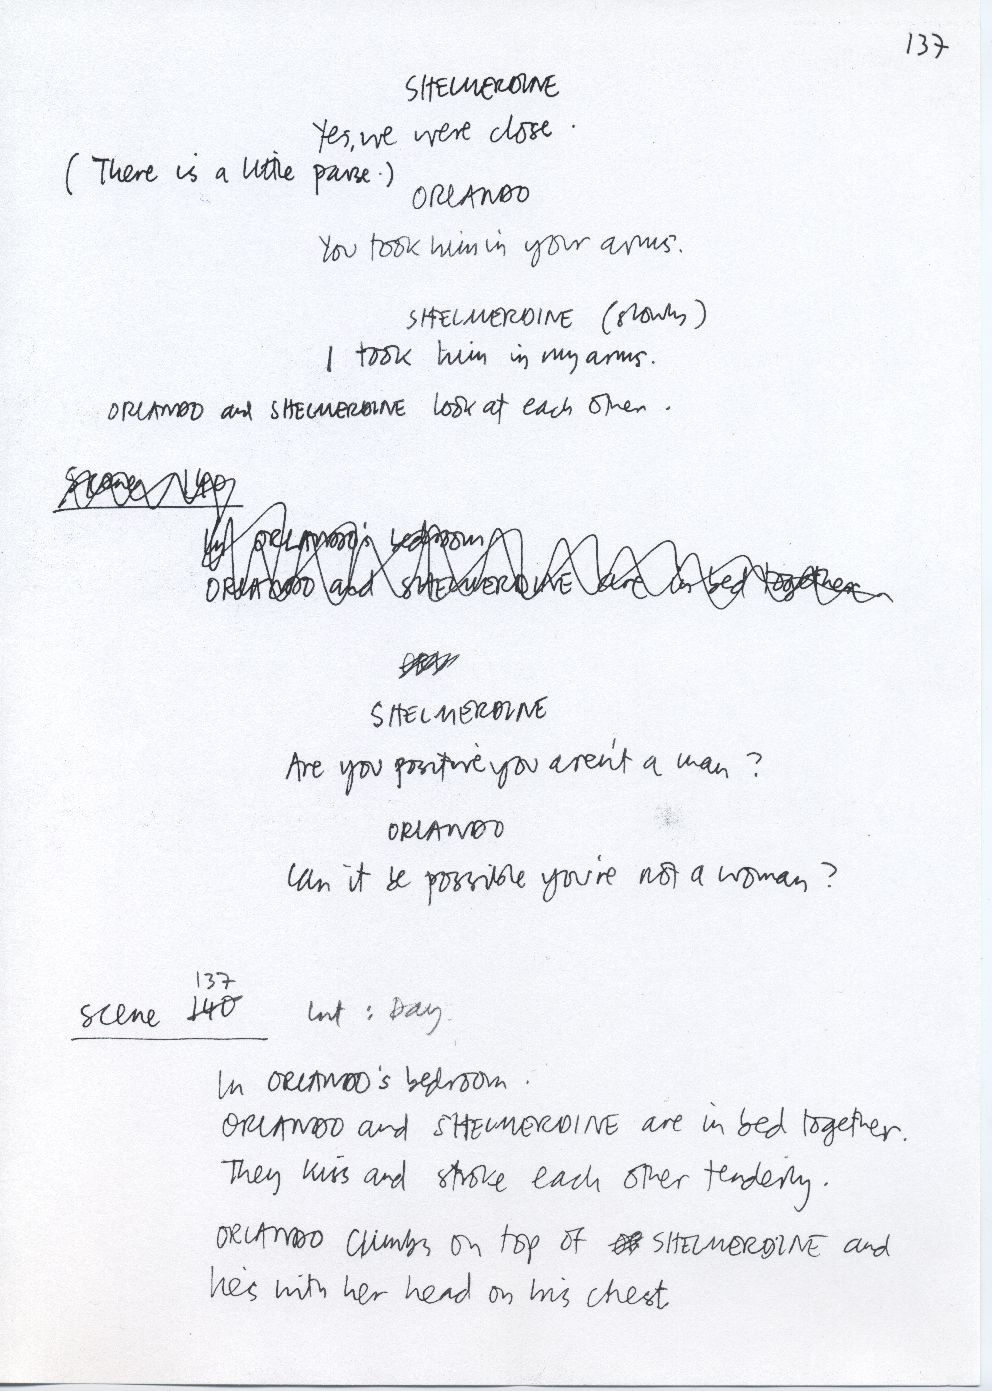 137
SHELMERDINE
Yes, we were close.
(There is a little pause.)
ORLANDO
You took him in your arms.
SHELMERDINE (slowly)
I took him in my arms.
ORLANDO and SHELMERDINE look at each other.
Scene 140
In ORLANDO's bedroom
ORLANDO and SHELMERDINE are in bed together
SHELMERDINE
Are you positive you aren't a man?
ORLANDO
Can it be possible you're not a woman?
137
Scene 140 Int: Day.
In ORLANDO's bedroom.
ORLANDO and SHELMERDINE are in bed together.
They kiss and stroke each other tenderly.
ORLANDO climbs on top of SHELMERDINE and
lies with her head on his chest